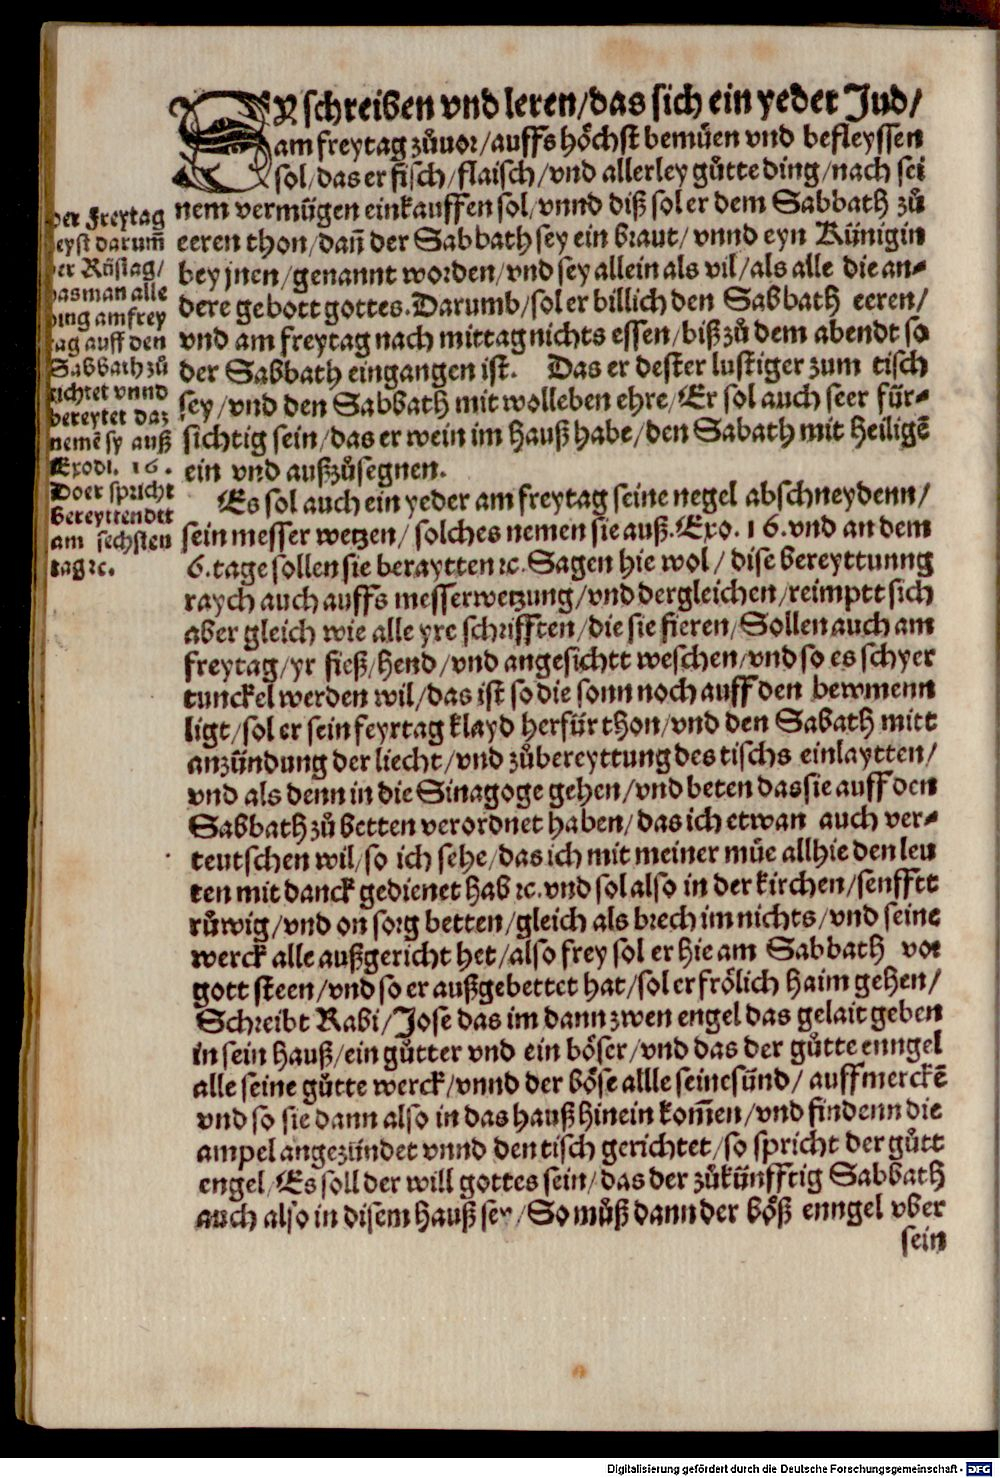 SY schreiben vnd leren/das sich ein yeder Jud/
am freytag zůuor/auffs höchst bemüen vnd befleyssen
sol/das er fisch/flaisch/vnd allerley gůtte ding/nach sei
nem vermügen einkauffen sol/vnnd diß sol er dem Sabbath zů
eeren thon/dañ der Sabbath sey ein braut/vnnd eyn Künigin
bey jnen/genannt worden/vnd sey allein als vil/als alle die an-
dere gebott gottes. Darumb/sol er billich den Sabbath eeren/
vnd am freytag nach mittag nichts essen/biß zů dem abendt so
der Sabbath eingangen ist. Das er dester lustiger zum tisch
sey/vnd den Sabbath mit wolleben ehre/Er sol auch seer für-
sichtig sein/das er wein im hauß habe/den Sabath mit heiligẽ
ein vnd außzůsegnen.
Es sol auch ein yeder am freytag seine negel abschneydenn/
sein messer wetzen/solches nemen sie auß. Exo. 16. vnd an dem
6. tage sollen sie beraytten ꝛc. Sagen hie wol/dise bereyttunng
raych auch auffs messerwetzung/vnd dergleichen/reimptt sich
aber gleich wie alle yre schrifften/die sie fieren/Sollen auch am
freytag/yr fieß/hend/vnd angesichtt weschen/vnd so es schyer
tunckel werden wil/das ist so die sonn noch auff den bewmenn
ligt/sol er sein feyrtag klayd herfür thon/vnd den Sabath mitt
anzündung der liecht/vnd zůbereyttung des tischs einlaytten/
vnd als denn in die Sinagoge gehen/vnd beten das sie auff den
Sabbath zů betten verordnet haben/das ich etwan auch ver-
teutschen wil/so ich sehe/das ich mit meiner müe allhie den leu
ten mit danck gedienet hab ꝛc. vnd sol also in der kirchen/senfftt
růwig/vnd on sorg betten/gleich als brech im nichts/vnd seine
werck alle außgericht het/also frey sol er hie am Sabbath vor
gott steen/vnd so er außgebettet hat/sol er frölich haim gehen/
Schreibt Rabi/Jose das im dann zwen engel das gelait geben
in sein hauß/ein gůtter vnd ein böser/vnd das der gůtte enngel
alle seine gůtte werck/vnnd der böse allle seine sünd/auffmerckẽ
vnd so sie dann also in das hauß hinein kom̃en/vnd findenn die
ampel angezündet vnnd den tisch gerichtet/so spricht der gůtt
engel/Es soll der will gottes sein/das der zůkünfftig Sabbath
auch also in disem hauß sey/So můß dann der böß enngel vber
sein
Der Freytag
heyst darum̃
der Rüstag/
das man alle
ding am frey
tag auff den
Sabbath zů
richtet vnnd
bereytet daz
nemẽ sy auß
Exodi. 16.
Do er spricht
bereyttendtt
am sechsten
tag ꝛc.
Digitalisierung gefördert durch die Deutsche Forschungsgemeinschaft - DFG